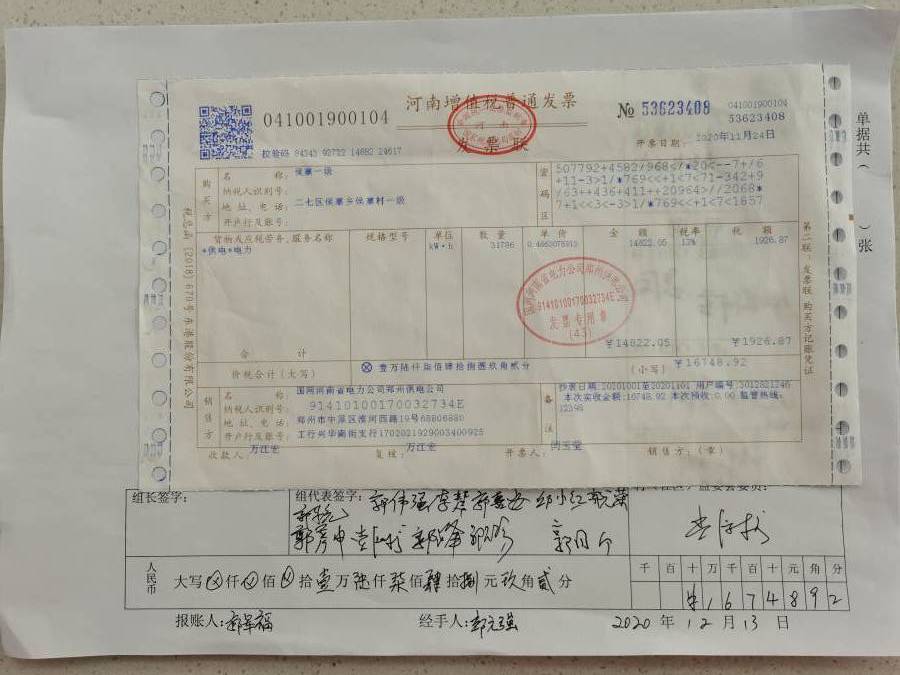 河南增值税普通发票
发票联
041001900104
№ 53623408
041001900104
53623408
校验码 84343 92722 14682 24617
开票日期： 2020年11月24日
购买方
名 称： 侯寨一级
纳税人识别号：
地 址、电 话： 二七区侯寨乡侯寨村一级
开户行及账号：
密码区
507792+4582/968</*20<--7+/6
+11-3>1/*769<<+1<7<71-342+9
/63++436+411++20964>//2068*
7+1<<3<-3>1/*769<<+1<7<1857
货物或应税劳务、服务名称 规格型号 单位 数 量 单 价 金 额 税率 税 额
*供电*电力 kW·h 31786 14822.05 13% 1926.87
合 计 ¥14822.05 ¥1926.87
价税合计（大写） ⊗ 壹万陆仟柒佰肆拾捌圆玖角贰分 （小写） ¥16748.92
销售方
名 称： 国网河南省电力公司郑州供电公司
纳税人识别号： 91410100170032734E
地 址、电 话： 郑州市中原区淮河西路19号68806880
开户行及账号： 工行兴华南街支行1702021929003400925
备注
抄表日期:20201001至20201101 用户编号:3012821246
本次实收金额:16748.92 本次预收:0.00 监督热线:
12398
收款人： 万江宏 复核： 万江宏 开票人： 闫玉堂 销售方：（章）
国网河南省电力公司郑州供电公司
91410100170032734E
发票专用章
(43)
税总函〔2018〕670号东港股份有限公司
第二联：发票联 购买方记账凭证
单据共（ ）张
组长签字：
组代表签字：
人民币 大写 ⊗ 仟 ⊗ 佰 ⊗ 拾 壹 万 陆 仟 柒 佰 肆 拾 捌 元 玖 角 贰 分
千 百 十 万 千 百 十 元 角 分
1 6 7 4 8 9 2
报账人： 经手人：
2020 年 12 月 13 日